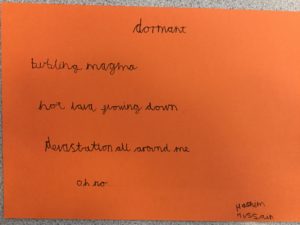 dormant
bubbling magma
hot lava flowing down
Devastation all around me
oh no
Hashem
Hussain